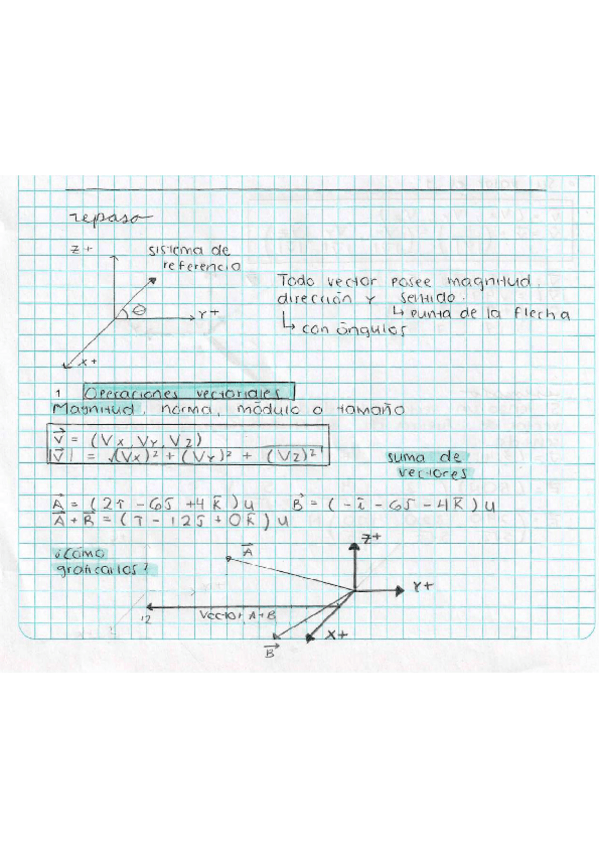 repaso
z+
sistema de
referencia
θ
Y+
X+
Todo vector posee magnitud,
dirección y sentido.
↳ punta de la flecha
↳ con ángulos
1 Operaciones vectoriales
Magnitud, norma, módulo o tamaño
V⃗ = (Vx, Vy, Vz)
|V⃗| = √(Vx)² + (Vy)² + (Vz)²
suma de
vectores
A⃗ = (2î - 6ĵ + 4k̂)u B⃗ = (-î - 6ĵ - 4k̂)u
A⃗ + B⃗ = (î - 12ĵ + 0k̂)u
¿Cómo
graficarlos?
A⃗
z+
Y+
12
Vector A+B
X+
B⃗